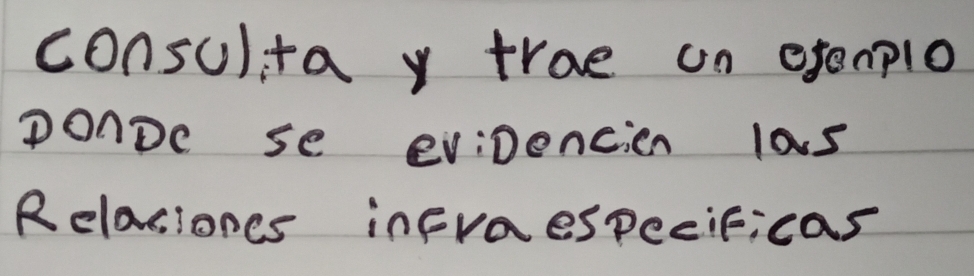 consulta y trae un ejenplo
DonDe se eviDencien las
Relaciones infraespecificas